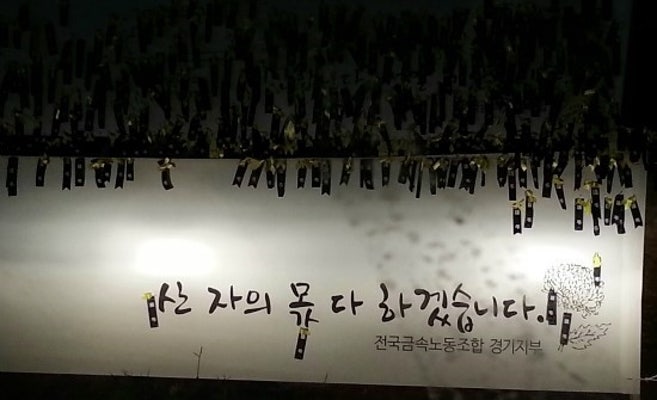 산 자의 몫 다 하겠습니다.
전국금속노동조합 경기지부